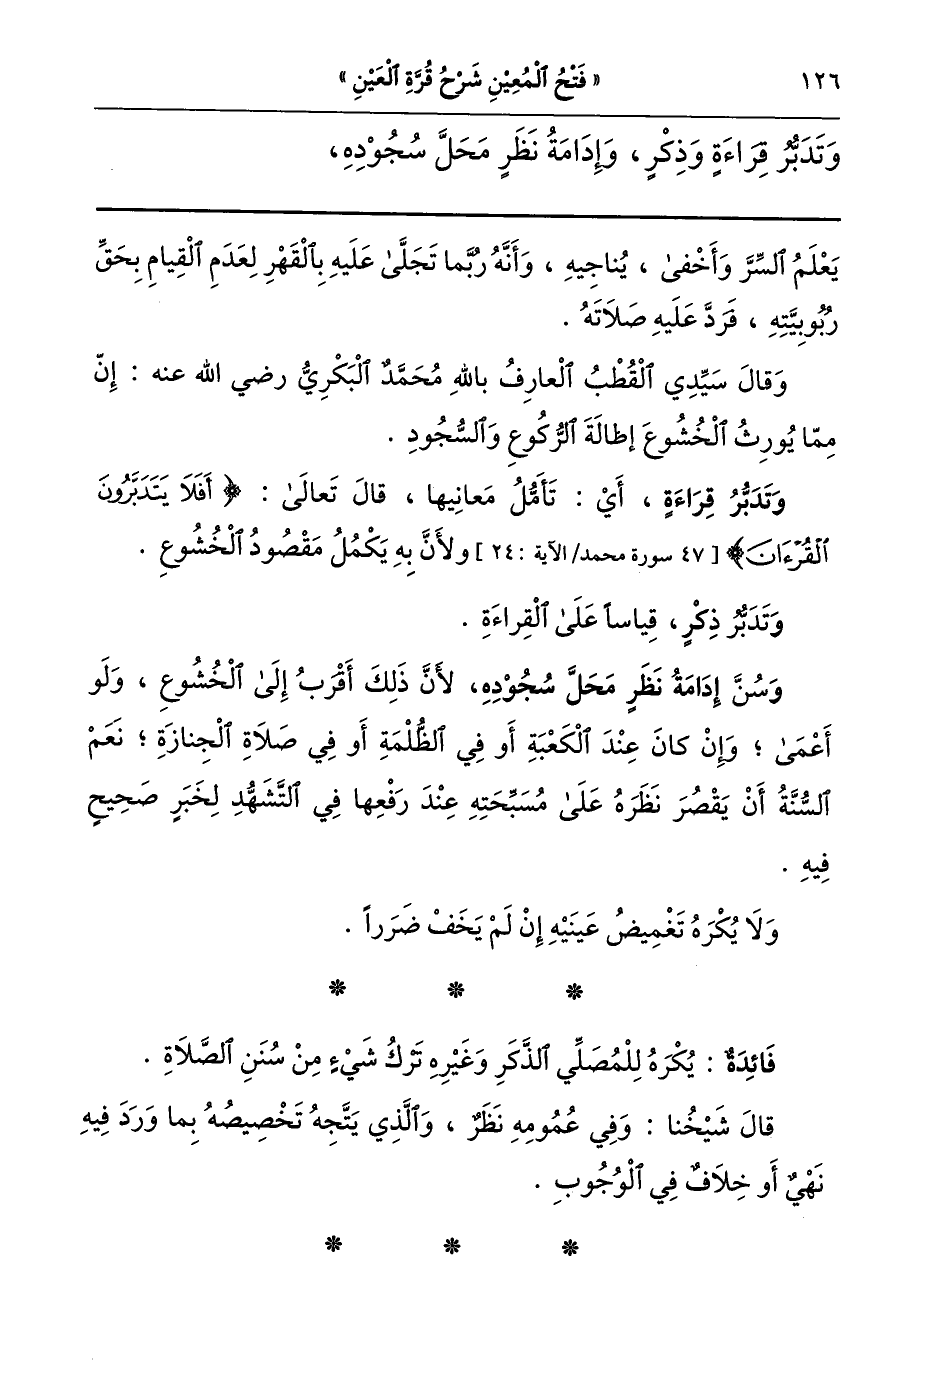 ١٢٦ « فَتْحُ ٱلْمُعِيْنِ شَرْحُ قُرَّةِ ٱلْعَيْنِ »
وَتَدَبُّرُ قِرَاءَةٍ وَذِكْرٍ ، وَإِدَامَةُ نَظَرٍ مَحَلَّ سُجُوْدِهِ،
يَعْلَمُ ٱلسِّرَّ وَأَخْفىٰ ، يُناجِيهِ ، وَأَنَّهُ رُبَّما تَجَلَّىٰ عَلَيهِ بِٱلْقَهْرِ لِعَدَمِ ٱلْقِيامِ بِحَقِّ
رُبُوبِيَّتِهِ ، فَرَدَّ عَلَيهِ صَلَاتَهُ .
وَقالَ سَيِّدِي ٱلْقُطْبُ ٱلْعارِفُ باللهِ مُحَمَّدٌ ٱلْبَكْرِيُّ رضي الله عنه : إِنّ
مِمّا يُورِثُ ٱلْخُشُوعَ إطالَةَ ٱلرُّكُوعِ وَٱلسُّجُودِ .
وَتَدَبُّرُ قِرَاءَةٍ ، أَيْ : تَأَمُّلُ مَعانِيها ، قالَ تَعالَىٰ : ﴿ أَفَلَا يَتَدَبَّرُونَ
ٱلْقُرْءَانَ﴾ [ ٤٧ سورة محمد/ الآية : ٢٤ ] ولأَنَّ بِهِ يَكْمُلُ مَقْصُودُ ٱلْخُشُوعِ .
وَتَدَبُّرُ ذِكْرٍ ، قِياساً عَلَىٰ ٱلْقِراءَةِ .
وَسُنَّ إِدَامَةُ نَظَرٍ مَحَلَّ سُجُوْدِهِ، لأَنَّ ذَلِكَ أَقْرَبُ إِلَىٰ ٱلْخُشُوعِ ، وَلَو
أَعْمَىٰ ؛ وَإِنْ كانَ عِنْدَ ٱلْكَعْبَةِ أَو فِي ٱلظُّلْمَةِ أَو فِي صَلَاةِ ٱلْجِنازَةِ ؛ نَعَمْ
ٱلسُّنَّةُ أَنْ يَقْصُرَ نَظَرَهُ عَلَىٰ مُسَبِّحَتِهِ عِنْدَ رَفْعِها فِي ٱلتَّشَهُّدِ لِخَبَرٍ صَحِيحٍ
فِيهِ .
وَلَا يُكْرَهُ تَغْمِيضُ عَينَيْهِ إِنْ لَمْ يَخَفْ ضَرَراً .
* * *
فَائِدَةٌ : يُكْرَهُ لِلْمُصَلِّي ٱلذَّكَرِ وَغَيْرِهِ تَرْكُ شَيْءٍ مِنْ سُنَنِ ٱلصَّلَاةِ .
قالَ شَيْخُنا : وَفِي عُمُومِهِ نَظَرٌ ، وَٱلَّذِي يَتَّجِهُ تَخْصِيصُهُ بِما وَرَدَ فِيهِ
نَهْيٌ أَو خِلَافٌ فِي ٱلْوُجُوبِ .
* * *